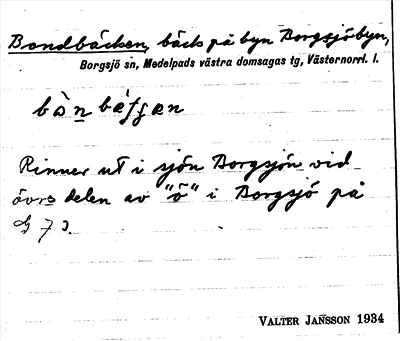 Bondbäcken, bäck på byn Borgsjöbyn,
Borgsjö sn, Medelpads västra domsagas tg, Västernorrl. l.
Rinner ut i sjön Borgsjön vid
övre delen av "ö" i Borgsjö på
VALTER JANSSON 1934